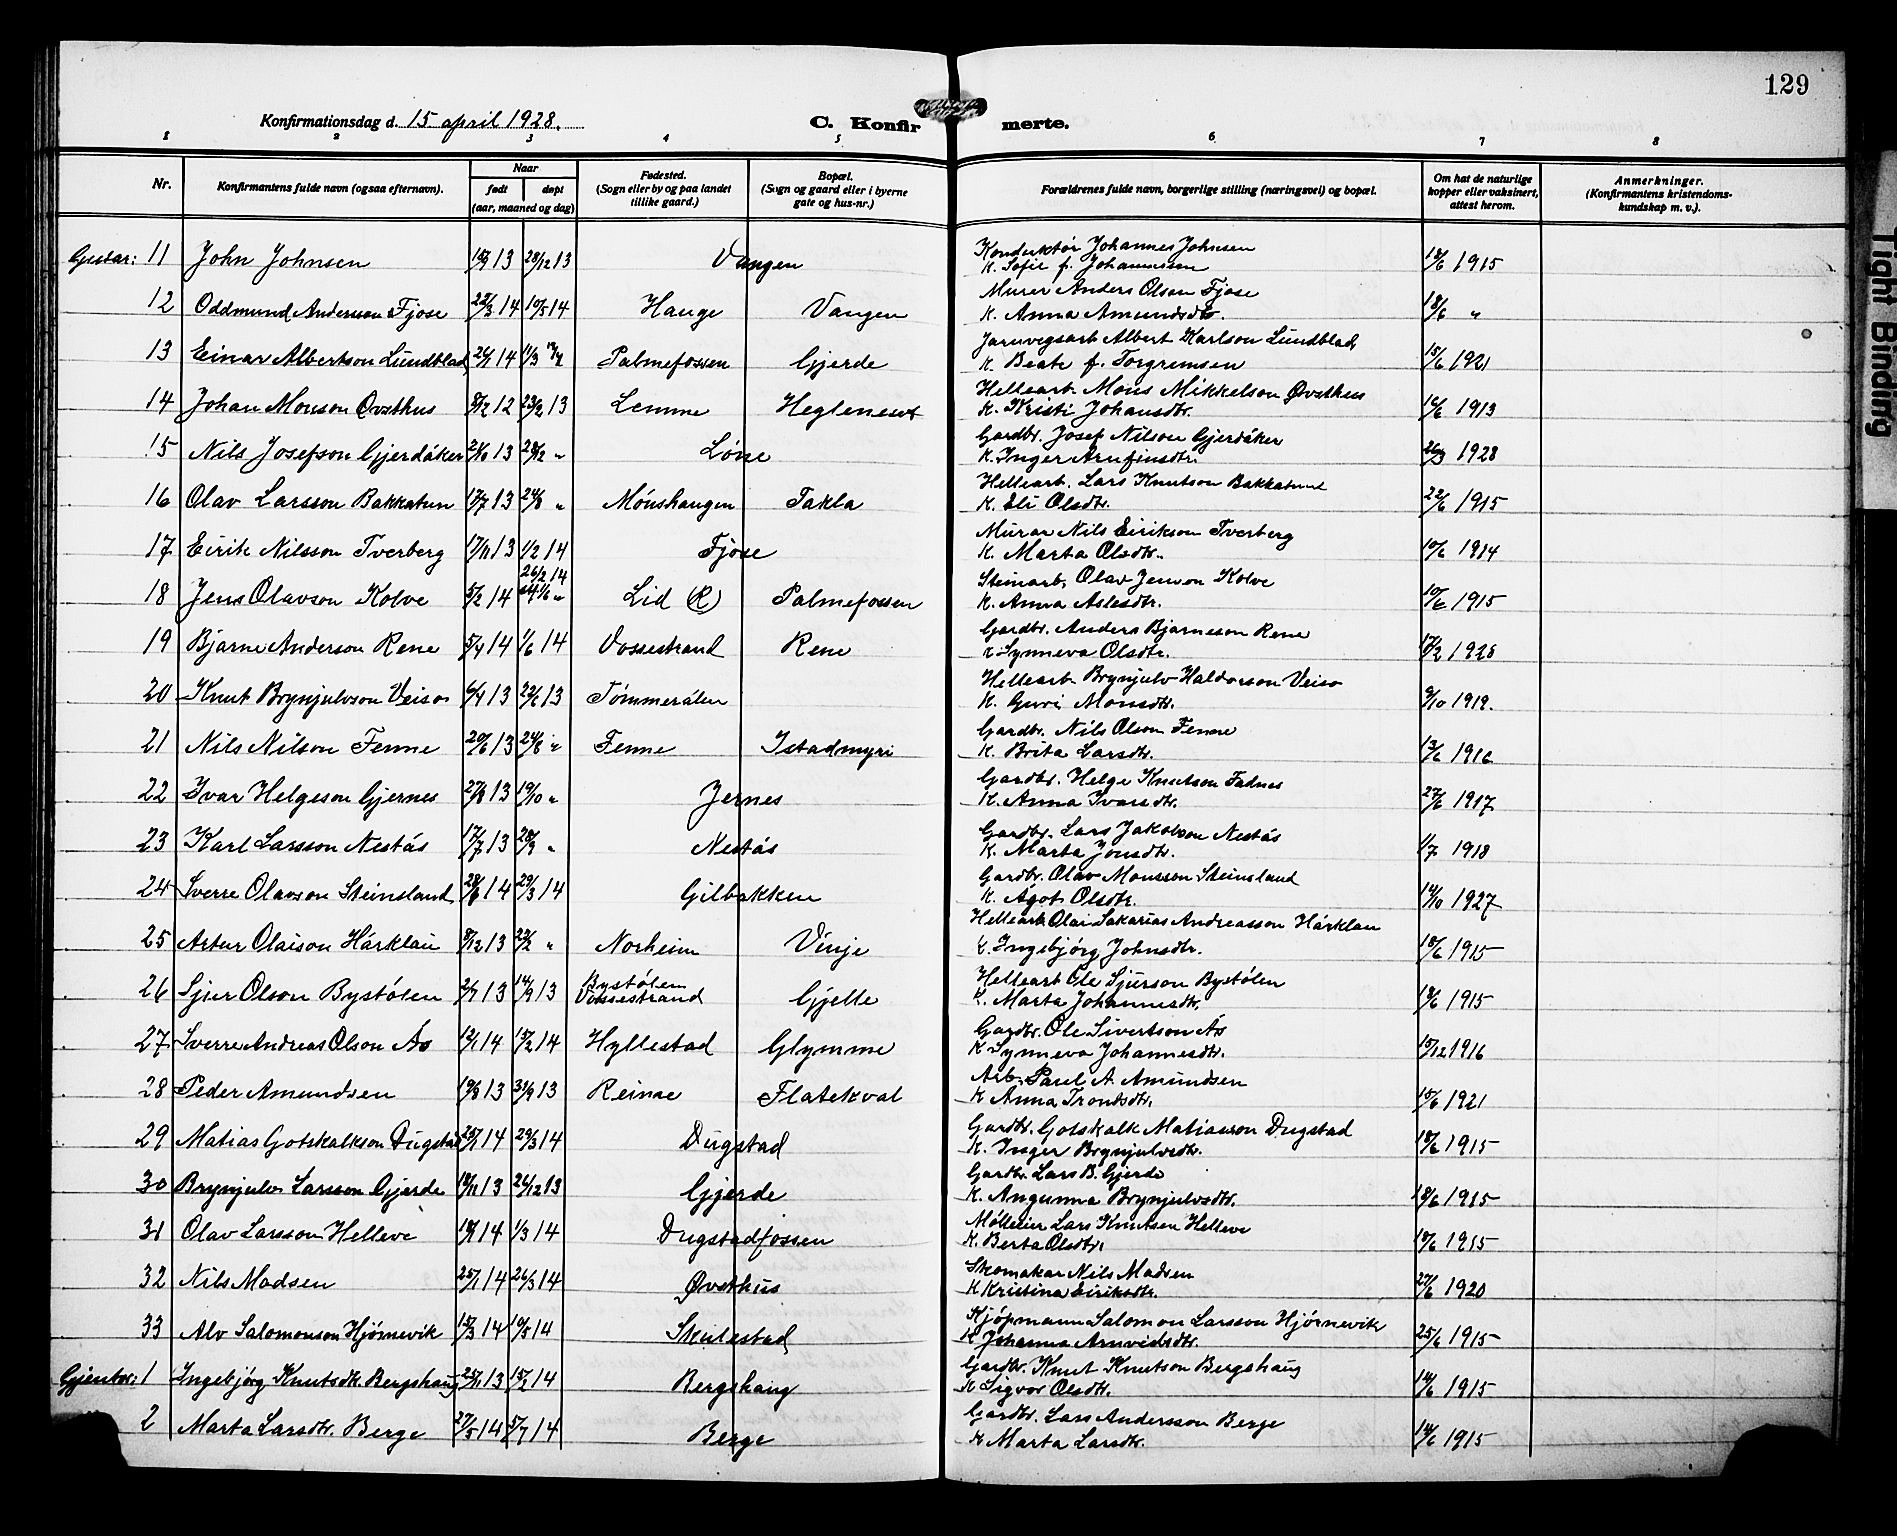 129
Konfirmationsdag d. 15 april 1928.
C. Konfir merte.
1 2 3 4 5 6 7 8
Nr.
Konfirmantens fulde navn (ogsaa efternavn).
Naar
født døpt
(aar, maaned og dag)
Fødested.
(Sogn eller by og paa landet
tillike gaard.)
Bopæl.
(Sogn og gaard eller i byerne
gate og hus-nr.)
Forældrenes fulde navn, borgerlige stilling (næringsvei) og bopæl.
Om hat de naturlige
kopper eller vaksinert,
attest herom.
Anmerkninger.
(Konfirmantens kristendoms-
kundskap m. v.).
Gutar: 11 John Johnsen 13 28/12 13 Vangen Konduktør Johannes Johnsen
K. Sofie f. Johannessen 18/6 1915
12 Oddmund Anderson Fjose 22/3 14 10/5 14 Hauge Vangen Murer Anders Olson Fjose
K. Anna Amundsdtr. 18/6 "
13 Einar Albertson Lundblad 14 Palmefossen Gjerde Jarnvegsarb. Albert Karlson Lundblad
K. Beate f. Torgrimsen 15/6 1921
14 Johan Monson Øvsthus 8/12 12 23/2 13 Lemme Heglenest Hellearb. Mons Mikkelson Øvsthus
K. Kristi Johansdtr. 16/6 1913
15 Nils Josefson Gjerdåker 21/10 13 28/12 " Løne Gardbr. Josef Nilson Gjerdåker
K. Inger Arnfinsdtr. 26/3 1928
16 Olav Larsson Bakkatun 17/7 13 24/8 " Mónshaugen Takla Hellearb. Lars Knutson Bakkatun
K. Eli Olsdtr. 22/6 1915
17 Eirik Nilsson Tverberg 17/11 13 1/2 14 Fjose Murar Nils Eirikson Tverberg
K. Marta Olsdtr. 10/6 1914
18 Jens Olavson Kolve 5/2 14 26/2 14 Lid (R) Palmefossen Steinarb. Olav Jenson Kolve
K. Anna Aslesdtr. 10/6 1915
19 Bjarne Anderson Rene 5/4 14 1/6 14 Vossestrand Rene Gardbr. Anders Bjarneson Rene
K Synneva Olsdtr. 17/2 1928
20 Knut Brynjulvson Veiso 6/4 13 22/6 13 Tømmerålen Hellearb. Brynjulv Haldorson Veiso
K. Guri Monsdtr. 9/10 1919.
21 Nils Nilson Fenne 20/6 13 24/8 " Fenne Istadmyri Gardbr. Nils Olson Fenne
K. Brita Larsdtr. 13/6 1916
22 Ivar Helgeson Gjernes 27/8 13 19/10 " Jernes Gardbr. Helge Knutson Fadnes
K. Anna Ivarsdtr. 27/6 1917
23 Karl Larsson Nestås 17/7 13 28/9 " Nestås Gardbr. Lars Jakobson Nestås
K. Marta Jonsdtr. 1/7 1918
24 Sverre Olavson Steinsland 14 29/3 14 Gilbakken Gardbr. Olav Monsson Steinsland
K. Ågot Olsdtr. 14/10 1927
25 Artur Olaison Hårklau 8/12 13 22/2 " Norheim Vinje Hellearb. Olai Sakarias Andreasson Hårklau
K. Ingebjørg Johnsdtr. 18/6 1915
26 Sjur Olson Bystølen 2/7 13 14/9 13 Bystølen
Vossestrand Gjelle Hellearb Ole Sjurson Bystølen
K. Marta Johannesdtr. 18/6 1915
27 Sverre Andreas Olson Ås 12/1 14 15/2 14 Hyllestad Glymme Gardbr. Ole Sivertson Ås
K Synneva Johannesdtr. 15/12 1916
28 Peder Amundsen 19/8 13 13 Reime Flatekval Arb. Paul A. Amundsen
K Anna Trondsdtr. 15/6 1921
29 Matias Gotskalkson Dugstad 25/1 14 29/3 14 Dugstad Gardbr. Gotskalk Matiasson Dugstad
K. Inger Brynjulvsdtr. 18/6 1915
30 Brynjulv Larsson Gjerde 18/11 13 26/12 13 Gjerde Gardbr. Lars B. Gjerde
K. Angunna Brynjulvsdtr. 18/6 1915
31 Olav Larsson Helleve 14 1/3 14 Dugstadfossen Mølleier Lars Knutsen Helleve
K. Berta Olsdtr. 18/6 1915
32 Nils Madsen 25/1 14 26/3 14 Øvsthus Skomakar Nils Madsen
K Kristina Eiriksdtr. 27/6 1920
33 Alv Salomonson Hjørnevik 14 14 Skulestad Kjøpmann Salomon Larsson Hjørnevik
K Johanna Arnvidsdtr. 25/6 1915
Gjentor: 1 Ingebjørg Knutsdtr. Bergshaug 25/11 13 15/2 14 Bergshaug Gardbr. Knut Knutson Bergshaug
K Sigvor Olsdtr. 14/6 1915
2 Marta Larsdtr. Berge 27/5 14 5/7 14 Berge Gardbr. Lars Andersson Berge
K Marta Larsdtr. 14/6 1915
Tight Binding